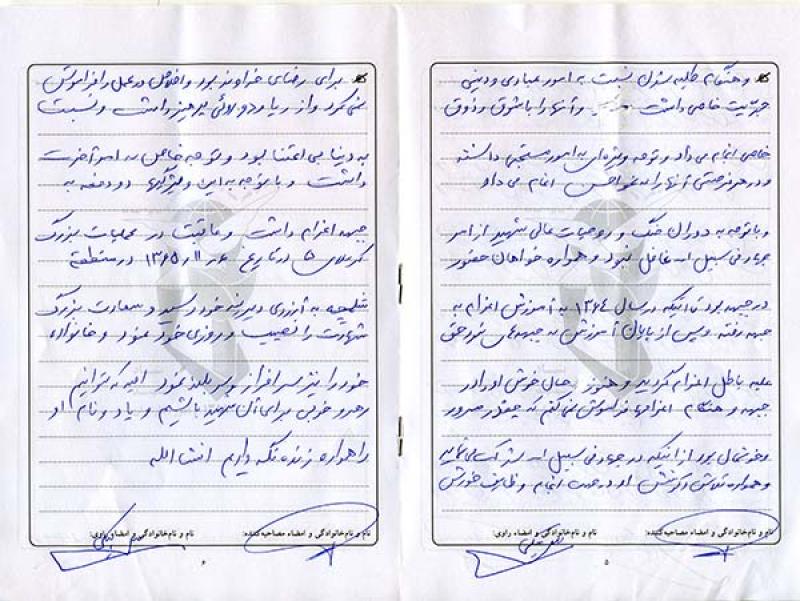 و هنگام طلبه شدن نسبت به امور عبادی و دینی
جدّیت خاصی داشت و آنها را با شوق و ذوق
خاصی انجام می‌داد و توجه ویژه‌ای به امور مستحبی داشته
و در هر فرصتی آنها را به نحو احسن انجام می‌داد
و با توجه به دوران جنگ و روحیات عالی شهید از امر
جهاد فی سبیل اله غافل نبود و همواره خواهان حضور
در جبهه بود تا اینکه در سال ۱۳۶۴ به آموزش اعزام به
جبهه رفته و پس از پایان آموزش به جبهه‌های نور حق
علیه باطل اعزام گردید و هنوز حال خوش او را در
جبهه و هنگام اعزامها فراموش نمی‌کنم که چقدر مسرور
و خوشحال بود از اینکه در جهاد فی سبیل اله شرکت می‌نماید
و همواره تلاش و کوشش او در جهت انجام وظایف خودش
نام و نام‌خانوادگی و امضاء مصاحبه‌کننده:
نام و نام‌خانوادگی و امضاء راوی:
۵
برای رضای خداوند بود و اخلاص در عمل را فراموش
نمی‌کرد و از ریا و دوروئی پرهیز داشت و نسبت
به دنیا بی‌اعتنا بود و توجه خاصی به امر آخرت
داشت و با توجه به این ویژگیها دو دفعه به
جبهه اعزام داشت و عاقبت در عملیات بزرگ
کربلای ۵ در تاریخ ۱۳۶۵ در منطقه
شلمچه به آرزوی دیرینه خود رسید و سعادت بزرگ
شهادت را نصیب و روزی خود نمود و خانواده
خود را نیز سرافراز و سربلند نمود امید که بتوانیم
رهرو خوبی برای آن شهید باشیم و یاد و نام او
را همواره زنده نگه داریم انشاالله
نام و نام‌خانوادگی و امضاء مصاحبه‌کننده:
نام و نام‌خانوادگی و امضاء راوی:
۶